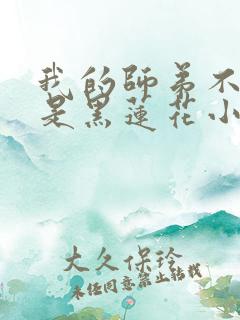 我的師弟不
是黑蓮花小
大久保玲
未任同意禁止转载